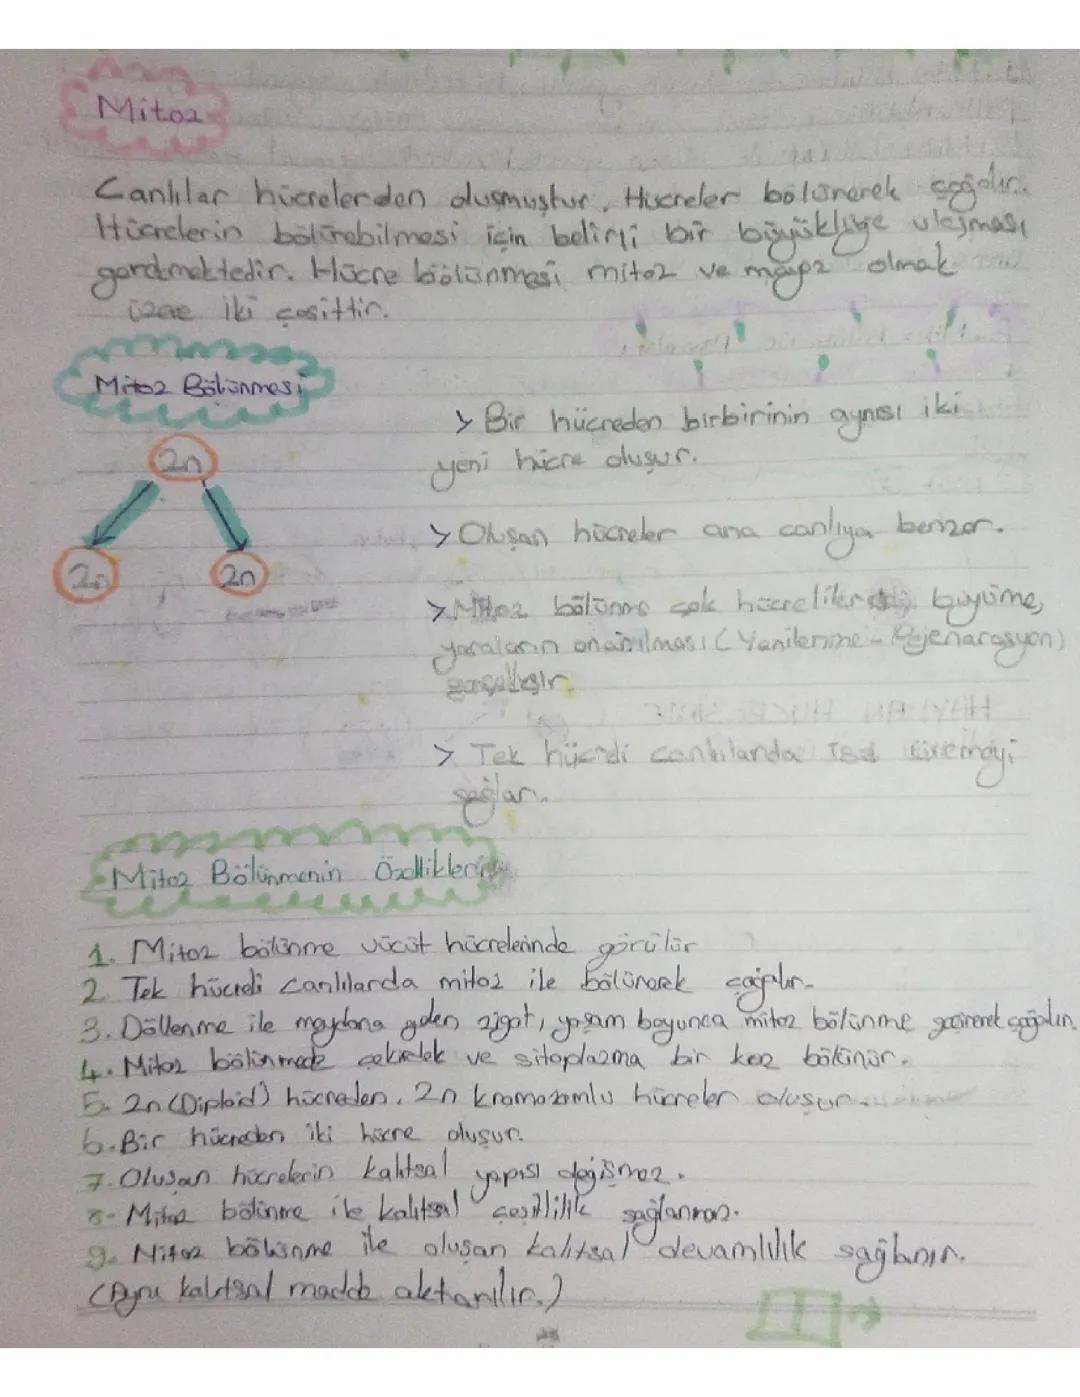 Mitoz
Canlılar hücrelerden oluşmuştur. Hücreler bölünerek çoğalır.
Hücrelerin bölünebilmesi için belirli bir büyüklüğe ulaşması
gerekmektedir. Hücre bölünmesi mitoz ve mayoz olmak
üzere iki çeşittir.
Mitoz Bölünmesi
2n
2n 2n
> Bir hücreden birbirinin aynısı iki
yeni hücre oluşur.
> Oluşan hücreler ana canlıya benzer.
> Mitoz bölünme çok hücrelilerde büyüme,
yaraların onarılması (Yenilenme - Rejenarasyon)
gerçekleşir.
> Tek hücreli canlılarda ise üremeyi
sağlar.
Mitoz Bölünmenin Özellikleri
1. Mitoz bölünme vücüt hücrelerinde görülür
2. Tek hücreli canlılarda mitoz ile bölünerek çoğalır.
3. Döllenme ile meydana gelen zigot, yaşam boyunca mitoz bölünme geçirerek çoğalır.
4. Mitoz bölünmede çekirdek ve sitoplazma bir kez bölünür.
5. 2n (Diploid) hücreden, 2n kromozomlu hücreler oluşur.
6. Bir hücreden iki hücre oluşur.
7. Oluşan hücrelerin kalıtsal yapısı değişmez.
8- Mitoz bölünme ile kalıtsal çeşitlilik sağlanmaz.
9. Mitoz bölünme ile oluşan kalıtsal devamlılık sağlanır.
(Aynı kalıtsal madde aktarılır.)
1